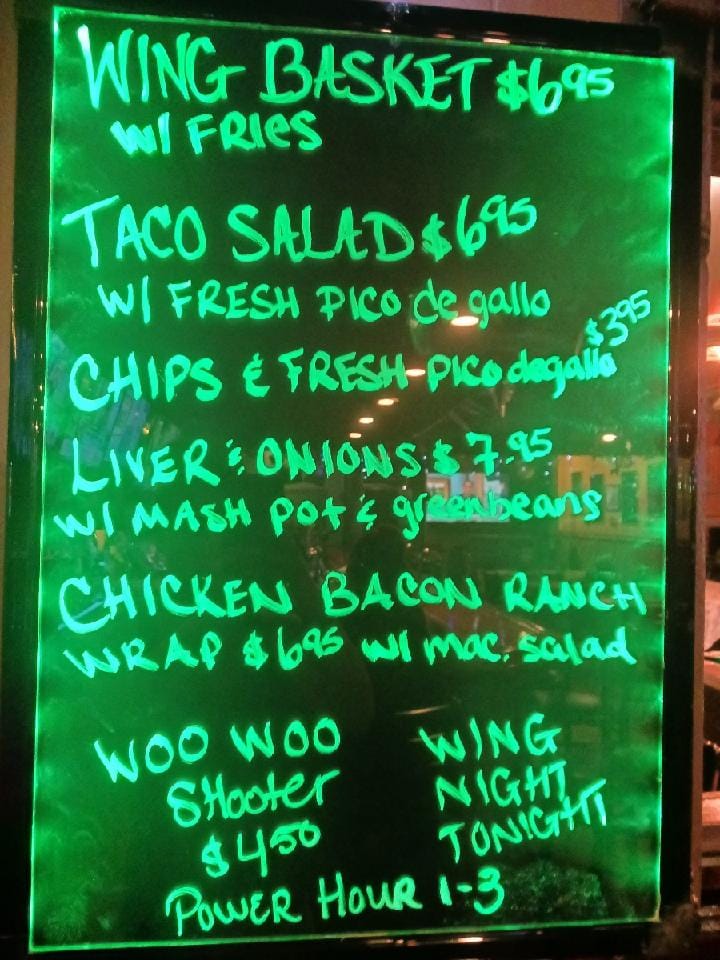 WING BASKET $6.95
W/ FRIES
TACO SALAD $6.95
W/ FRESH PICO de gallo
$3.95
CHIPS & FRESH PICO degallo
LIVER & ONIONS $7.95
W/ MASH POT & greenbeans
CHICKEN BACON RANCH
WRAP $6.95 W/ mac. salad
WOO WOO
SHooter
$4.50
WING
NIGHT
TONIGHT
POWER HOUR 1-3